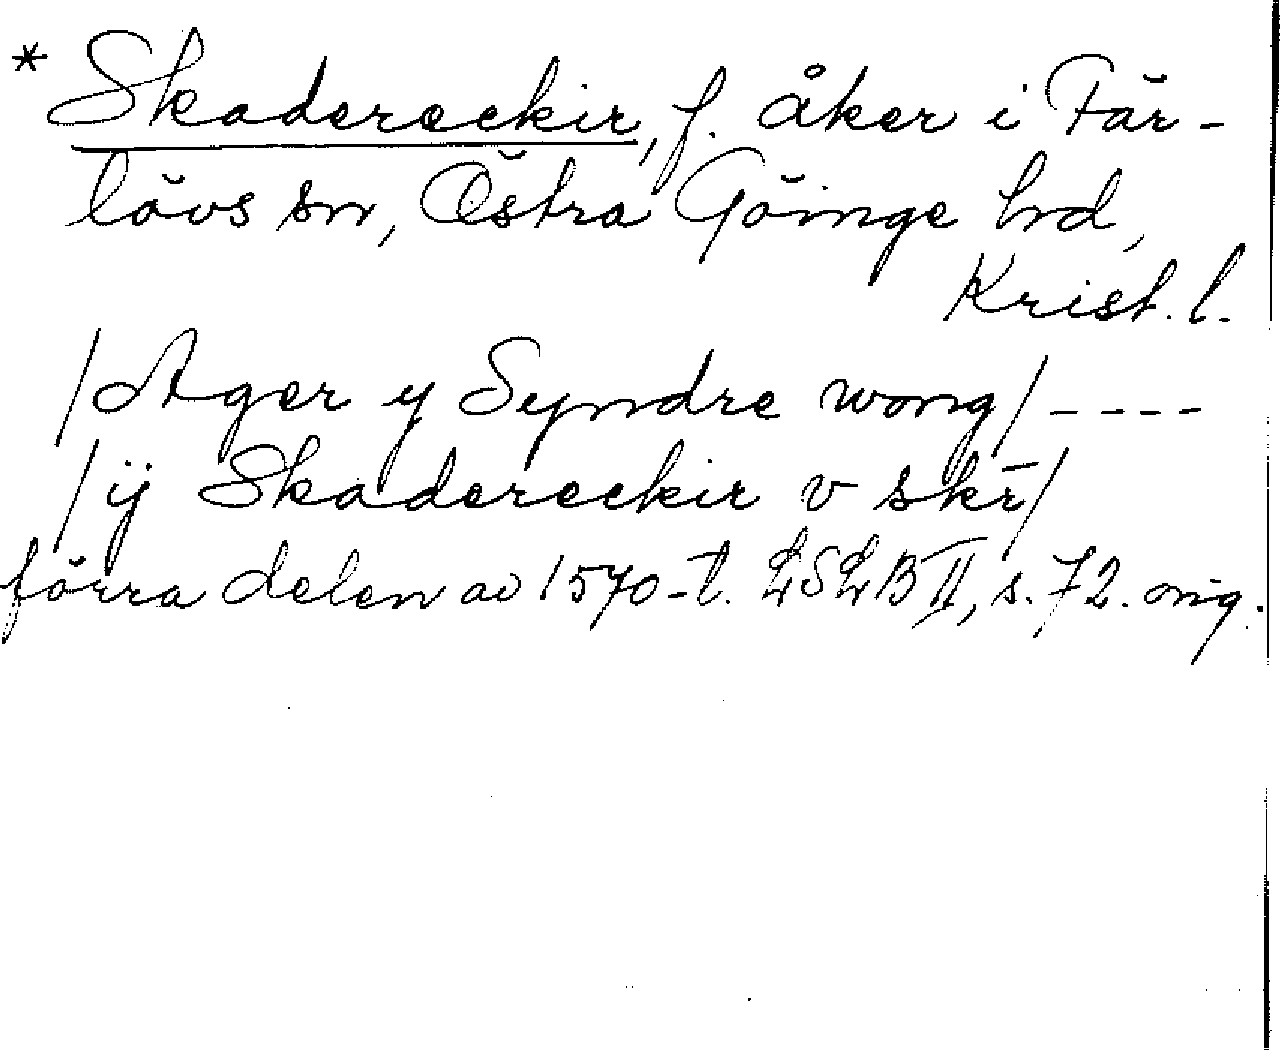 * Skadereckir, f. åker i Fär-
lövs sn, Östra Göinge hd,
Krist. l.
/Ager y Syndre wong/----
/ÿ Skadereckir v skr̄/
förra delen av 1570-t. LSLB II, s. 72. orig.